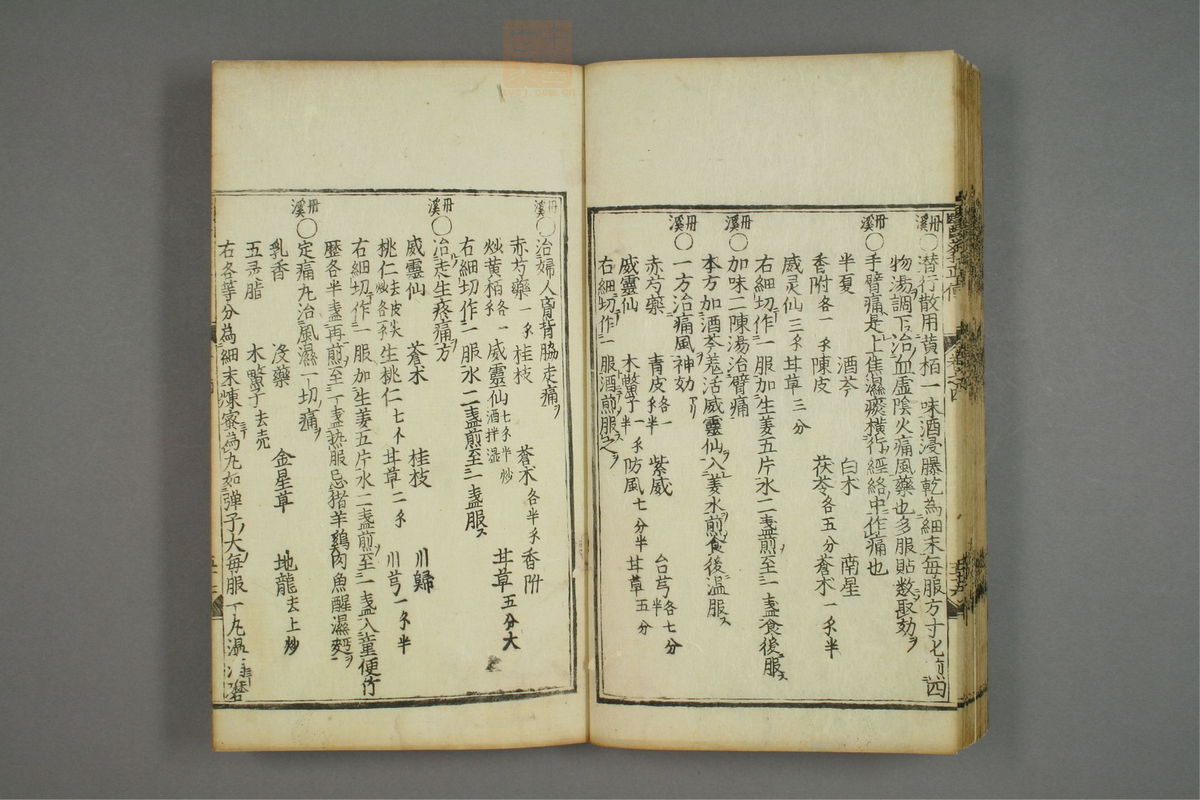 丹溪○潜行散用黄栢一味酒浸曝乾為細末毎服方寸七煎四
物湯調下治血虛陰火痛風藥也多服貼数取効
丹溪○手臂痛是上焦濕痰橫行經絡中作痛也
半夏 酒芩 白朮 南星
香附各一戔 陳皮 茯苓各五分 蒼朮一戔半
威灵仙三戔 甘草三分
右細切作一服加生姜五片水二盞煎至一盞食後服
丹溪○加味二陳湯治臂痛
本方加酒芩羗活威靈仙入姜水煎食後温服
丹溪○一方治痛風神効
赤芍藥 青皮各一戔半 紫威 台芎各七分半
威靈仙 木鱉子一戔 防風七分半 甘草五分
右細切作一服酒煎服之
丹溪○治婦人肩背脇走痛
赤芍藥一戔 桂枝 蒼朮各半戔 香附
炒黄栢各一戔 威靈仙七戔半酒拌湿炒 甘草五分大
右細切作一服水二盞煎至一盞服
丹溪○治走生疼痛方
威靈仙 蒼朮 桂枝 川歸
桃仁 生桃仁七个 甘草二戔 川芎一戔半
右細切作一服加生姜五片水二盞煎至一盞入童便竹
歷各半盞再煎至一盞熱服忌猪羊鷄肉魚醒濕麪
丹溪○定痛丸治風濕一切痛
乳香 沒藥 金星草 地龍去土炒
五灵脂 木鱉子去壳
右各等分為細末煉蜜為丸如弾子大毎服一丸温